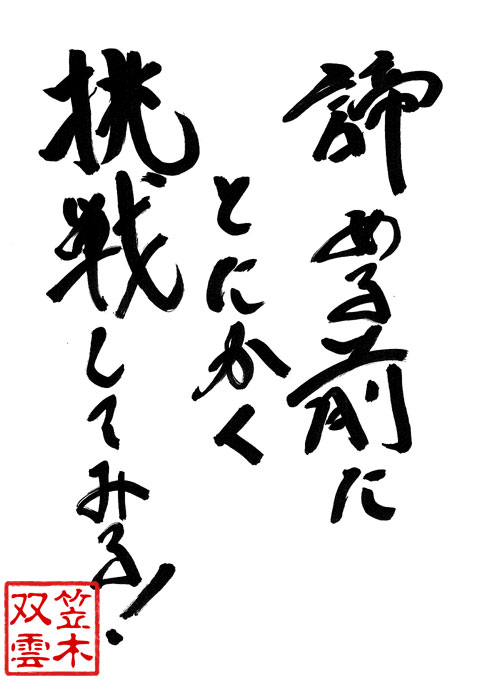 諦める前に
とにかく
挑戦してみる!
笠木
双雲